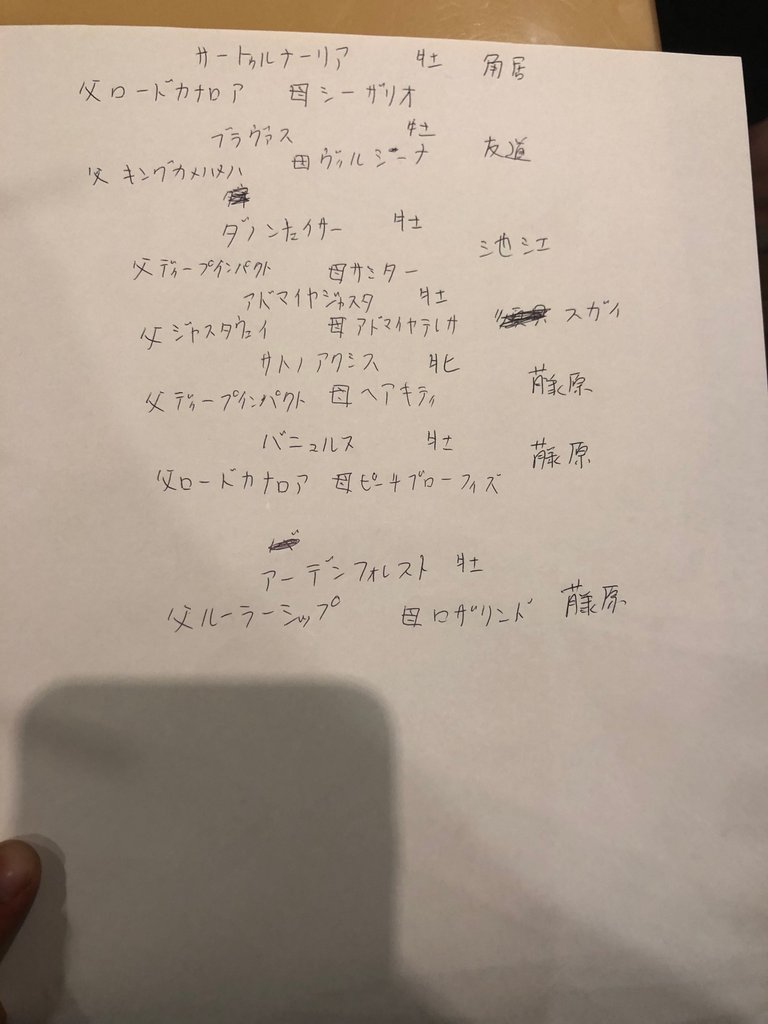 サートゥルナーリア 牡 角居
父ロードカナロア 母シーザリオ
ブラヴァス 牡 友道
父キングカメハメハ 母ヴィルジーナ
ダノンセイサー 牡 池江
父ディープインパクト 母サミター
アドマイヤジャスタ 牡
父ジャスタウェイ 母アドマイヤテレサ スガイ
サトノアクシス 牝 藤原
父ディープインパクト 母ヘアキティ
バニュルス 牡 藤原
父ロードカナロア 母ピーチブローフィズ
アーデンフォレスト 牡
父ルーラーシップ 母ロザリンド 藤原